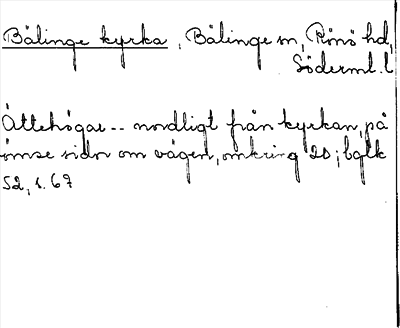 Bälinge kyrka, Bälinge sn, Rönö hd,
Söderml. l
Ättehögar -- nordligt från kyrkan, på
ömse sidor om vägen, omkring 20; bglk
52, s. 67